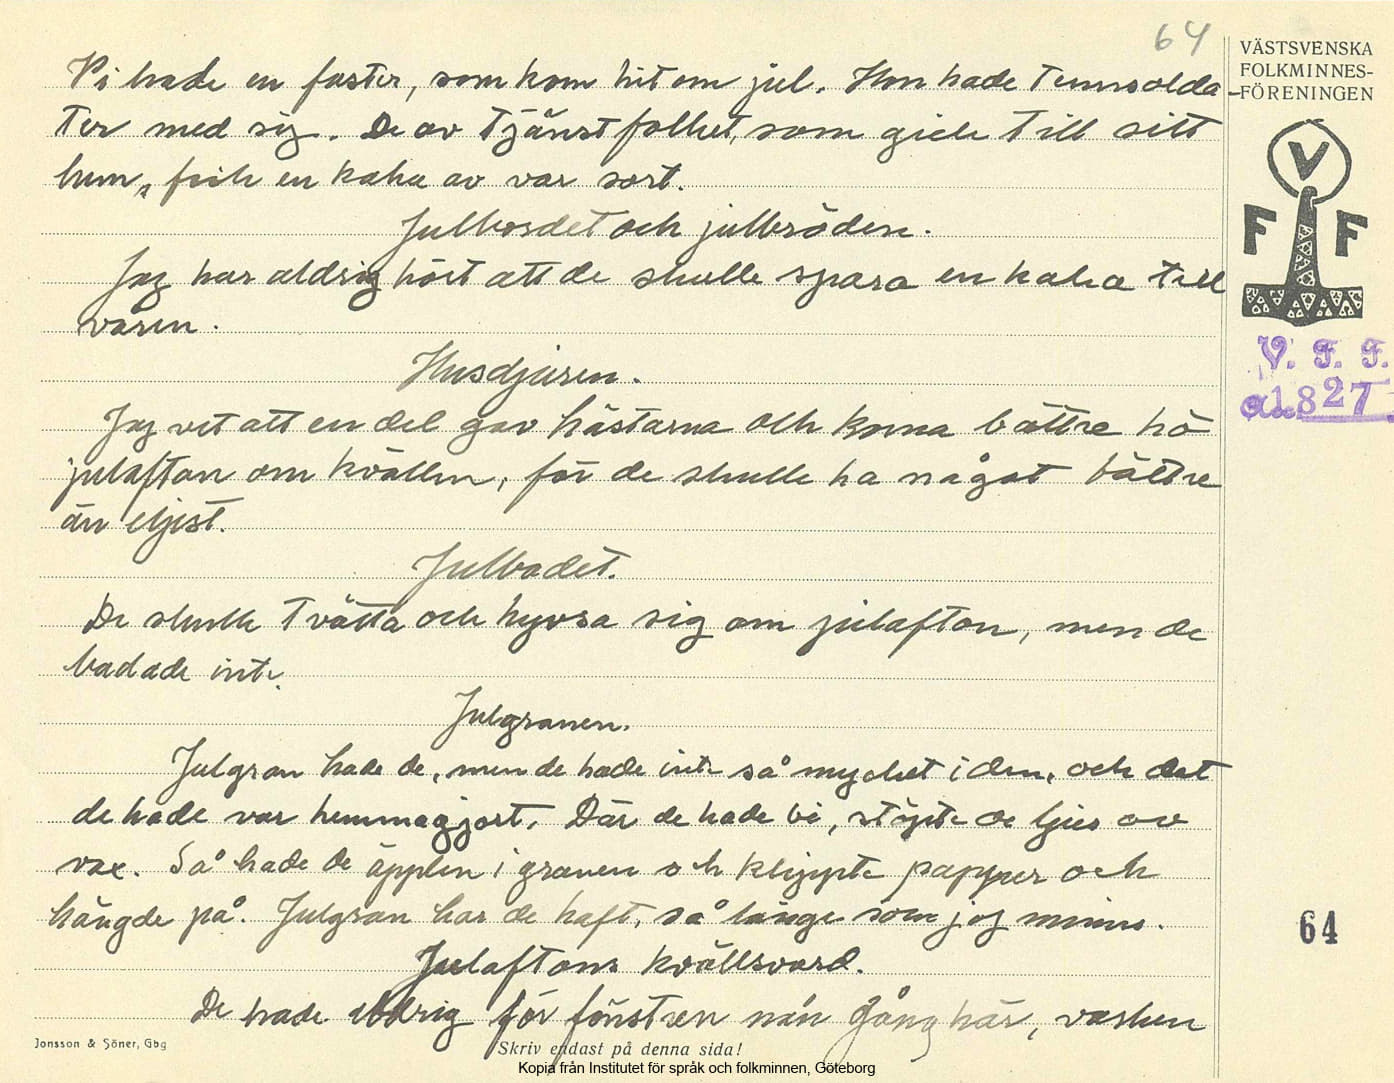 64
VÄSTSVENSKA
FOLKMINNES-
FÖRENINGEN
Vi hade en faster, som kom hit om jul. Hon hade tennsolda-
ter med sig. De av tjänstfolket, som gick till sitt
hem, fick en kaka av var sort.
Julbordet och julbröden.
Jag har aldrig hört att de skulle spara en kaka till
våren.
Husdjuren.
Jag vet att en del gav hästarna och korna bättre hö
julafton om kvällen, för de skulle ha något bättre
än eljest.
Julbadet.
De skulle tvätta och hyvsa sig om julafton, men de
badade inte.
Julgranen.
Julgran hade de, men de hade inte så mycket i den, och det
de hade var hemmagjort. Där de hade bi, stöpte de ljus av
vax. Så hade de äpplen i granen och klippte papper och
hängde på. Julgran har de haft, så länge som jag minns.
Julaftons kvällsvard.
De hade aldrig för fönstren nån gång här, varken
V
F F
V. F. F.
1827
64
Jonsson & Söner, Gbg
Skriv endast på denna sida!
Kopia från Institutet för språk och folkminnen, Göteborg